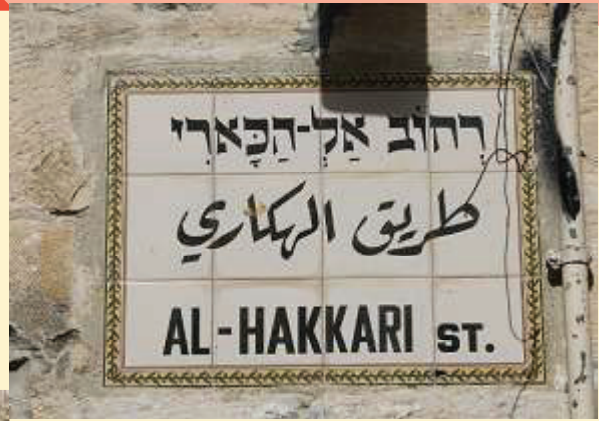 רְחוֹב אַלְ-הַכָּארִי
طريق الهكاري
AL-HAKKARI ST.